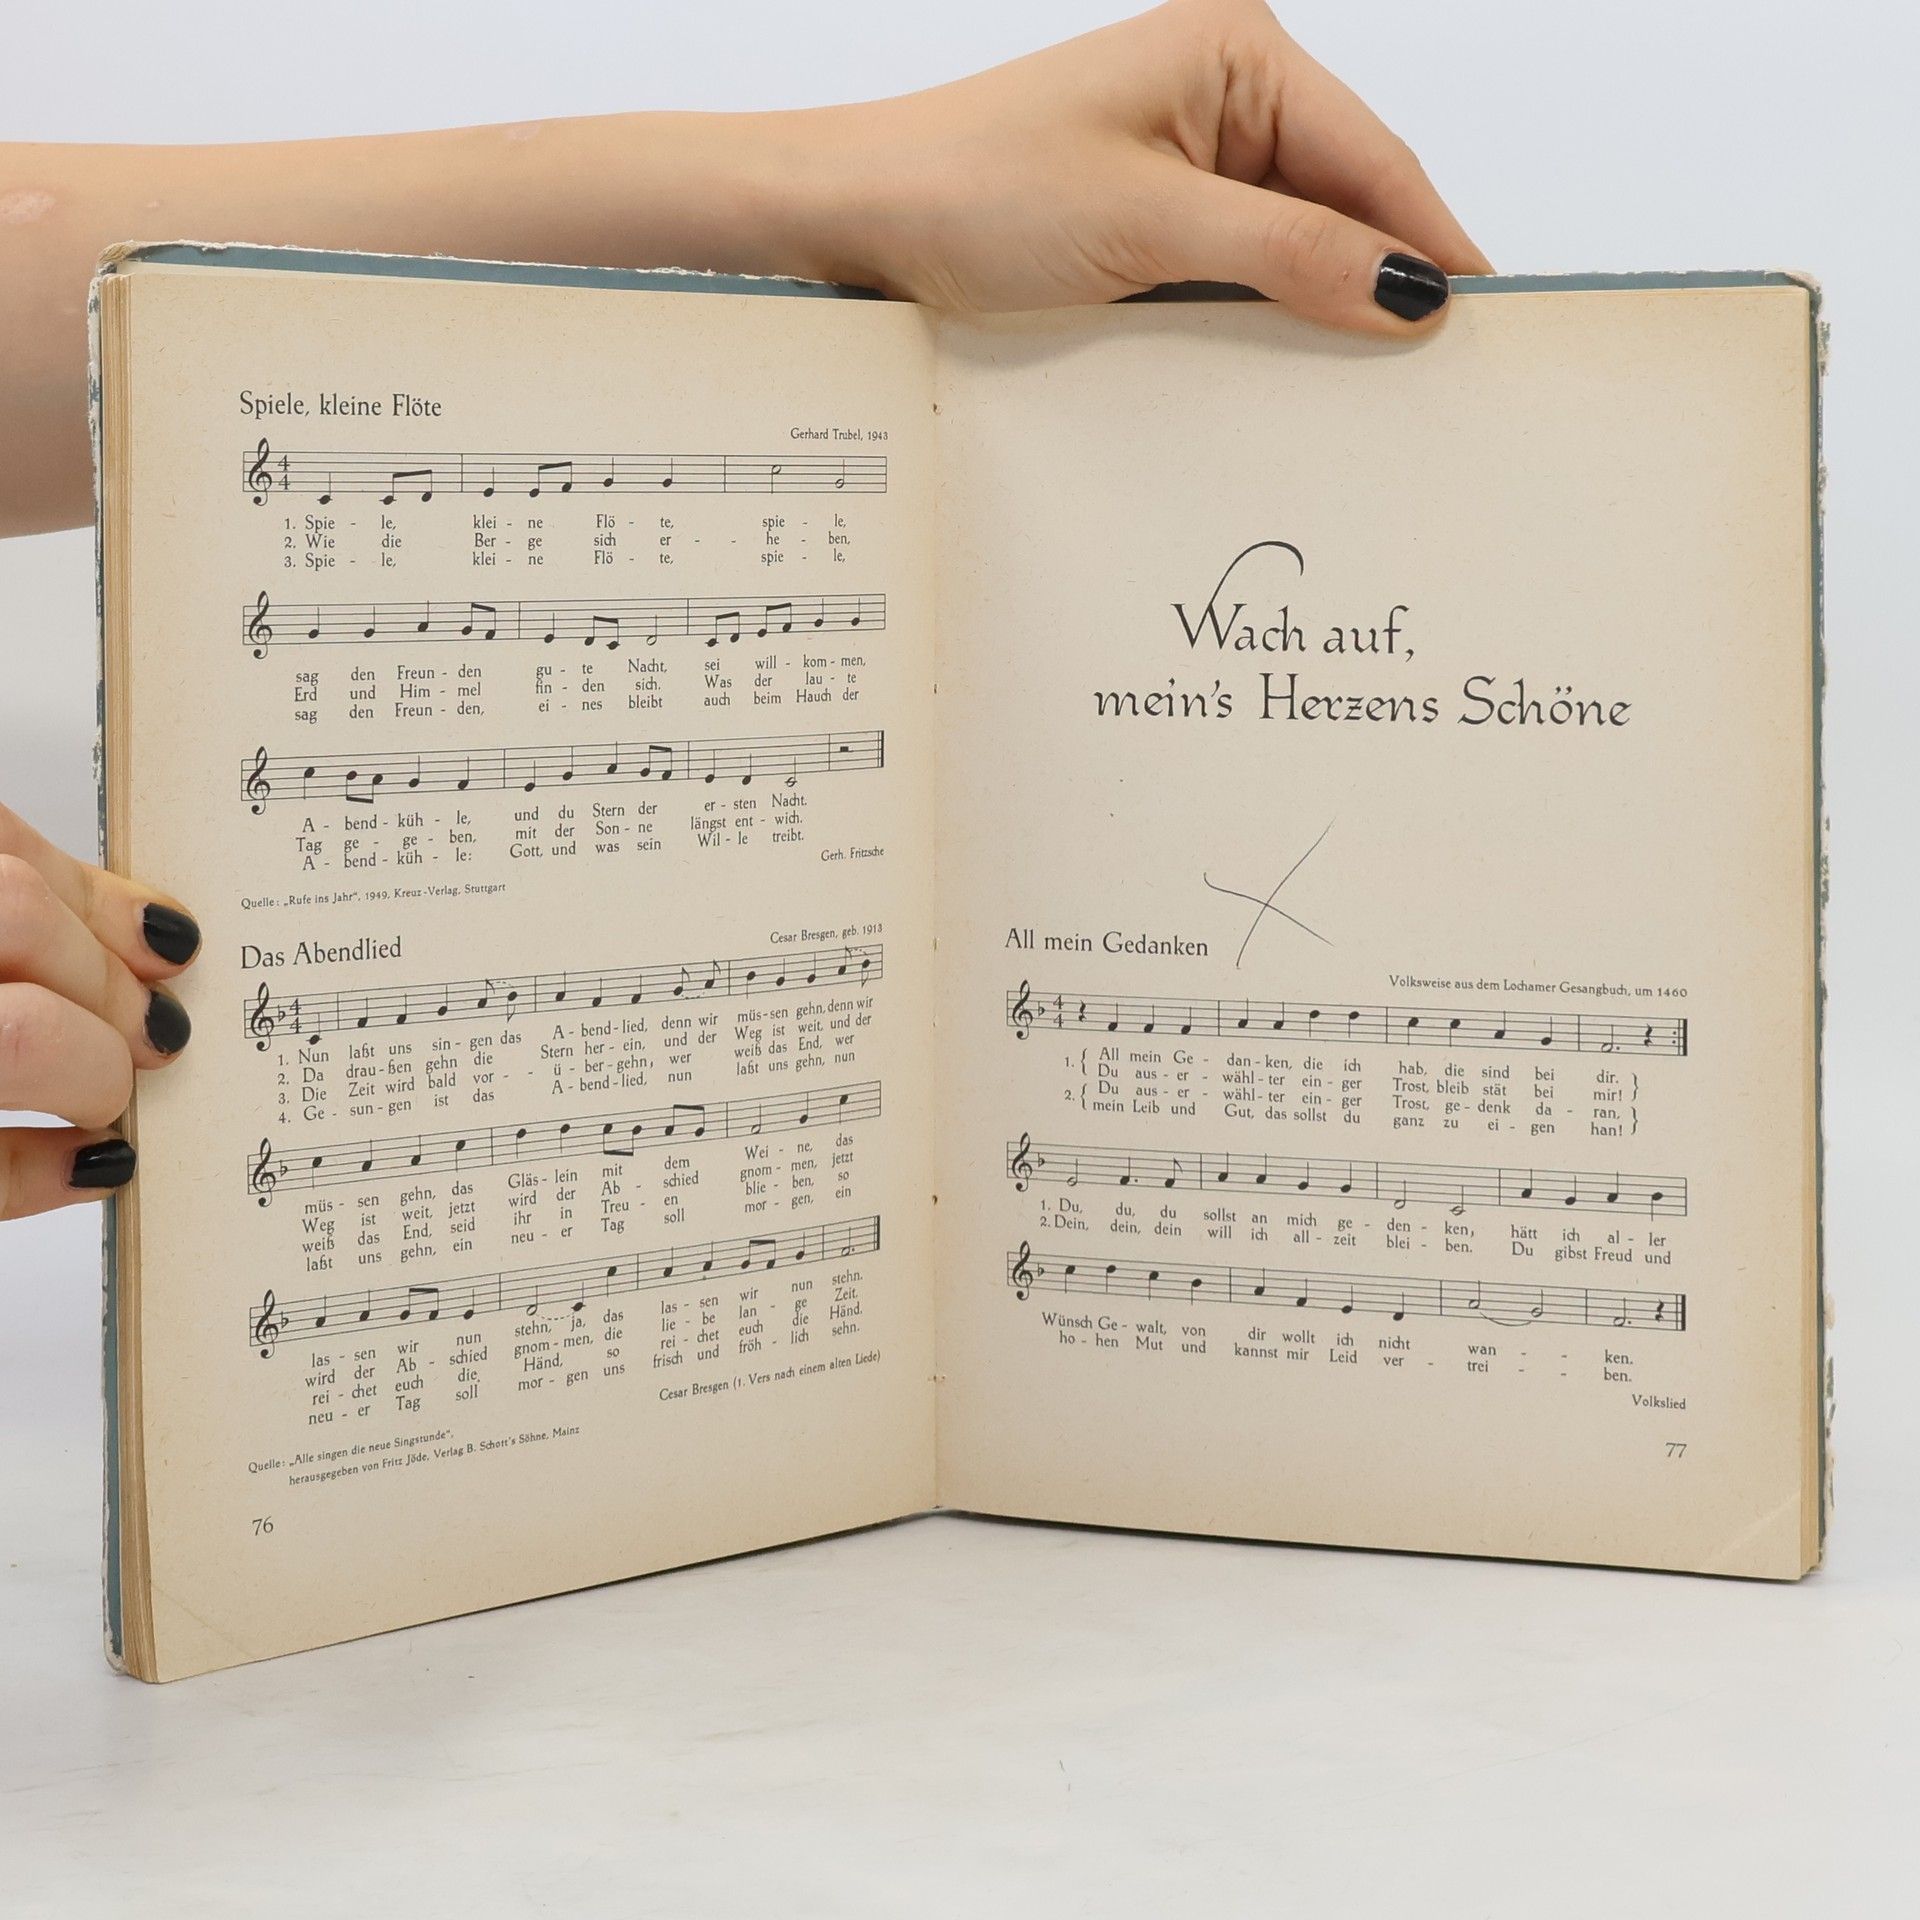 Spiele, kleine Flöte
Gerhard Trubel, 1943
4
4
1. Spie - le, klei - ne Flö - te, spie - le,
2. Wie die Ber - ge sich er - - he - ben,
3. Spie - le, klei - ne Flö - te, spie - le,
sag den Freun - den gu - te Nacht, sei will - kom - men,
Erd und Him - mel fin - den sich. Was der lau - te
sag den Freun - den, ei - nes bleibt auch beim Hauch der
A - bend - küh - le, und du Stern der er - sten Nacht.
Tag ge - ge - ben, mit der Son - ne längst ent - wich.
A - bend - küh - le: Gott, und was sein Wil - le treibt.
Gerh. Fritzsche
Quelle: „Rufe ins Jahr“, 1949, Kreuz-Verlag, Stuttgart
Das Abendlied
Cesar Bresgen, geb. 1913
4
4
1. Nun laßt uns sin - gen das A - bend - lied, denn wir müs - sen gehn, denn wir
2. Da drau - ßen gehn die Stern her - ein, und der Weg ist weit, und der
3. Die Zeit wird bald vor - - ü - ber - gehn, wer weiß das End, wer
4. Ge - sun - gen ist das A - bend - lied, nun laßt uns gehn, nun
müs - sen gehn, das Gläs - lein mit dem Wei - ne, das
Weg ist weit, jetzt wird der Ab - schied gnom - men, jetzt
weiß das End, seid ihr in Treu - en blie - ben, so
laßt uns gehn, ein neu - er Tag soll mor - gen, ein
las - sen wir nun stehn, ja, das las - sen wir nun stehn.
wird der Ab - schied gnom - men, die lie - be lan - ge Zeit.
rei - chet euch die Händ, so rei - chet euch die Händ.
neu - er Tag soll mor - gen uns frisch und fröh - lich sehn.
Cesar Bresgen (1. Vers nach einem alten Liede)
Quelle: „Alle singen die neue Singstunde“,
herausgegeben von Fritz Jöde, Verlag B. Schott's Söhne, Mainz
76
Wach auf,
mein's Herzens Schöne
All mein Gedanken
Volksweise aus dem Lochamer Gesangbuch, um 1460
4
4
1. { All mein Ge - dan - ken, die ich hab, die sind bei dir. }
{ Du aus - er - wähl - ter ein - ger Trost, bleib stät bei mir! }
2. { Du aus - er - wähl - ter ein - ger Trost, ge - denk da - ran, }
{ mein Leib und Gut, das sollst du ganz zu ei - gen han! }
1. Du, du, du sollst an mich ge - den - ken, hätt ich al - ler
2. Dein, dein, dein will ich all - zeit blei - ben. Du gibst Freud und
Wünsch Ge - walt, von dir wollt ich nicht wan - - ken.
ho - hen Mut und kannst mir Leid ver - trei - - ben.
Volkslied
77